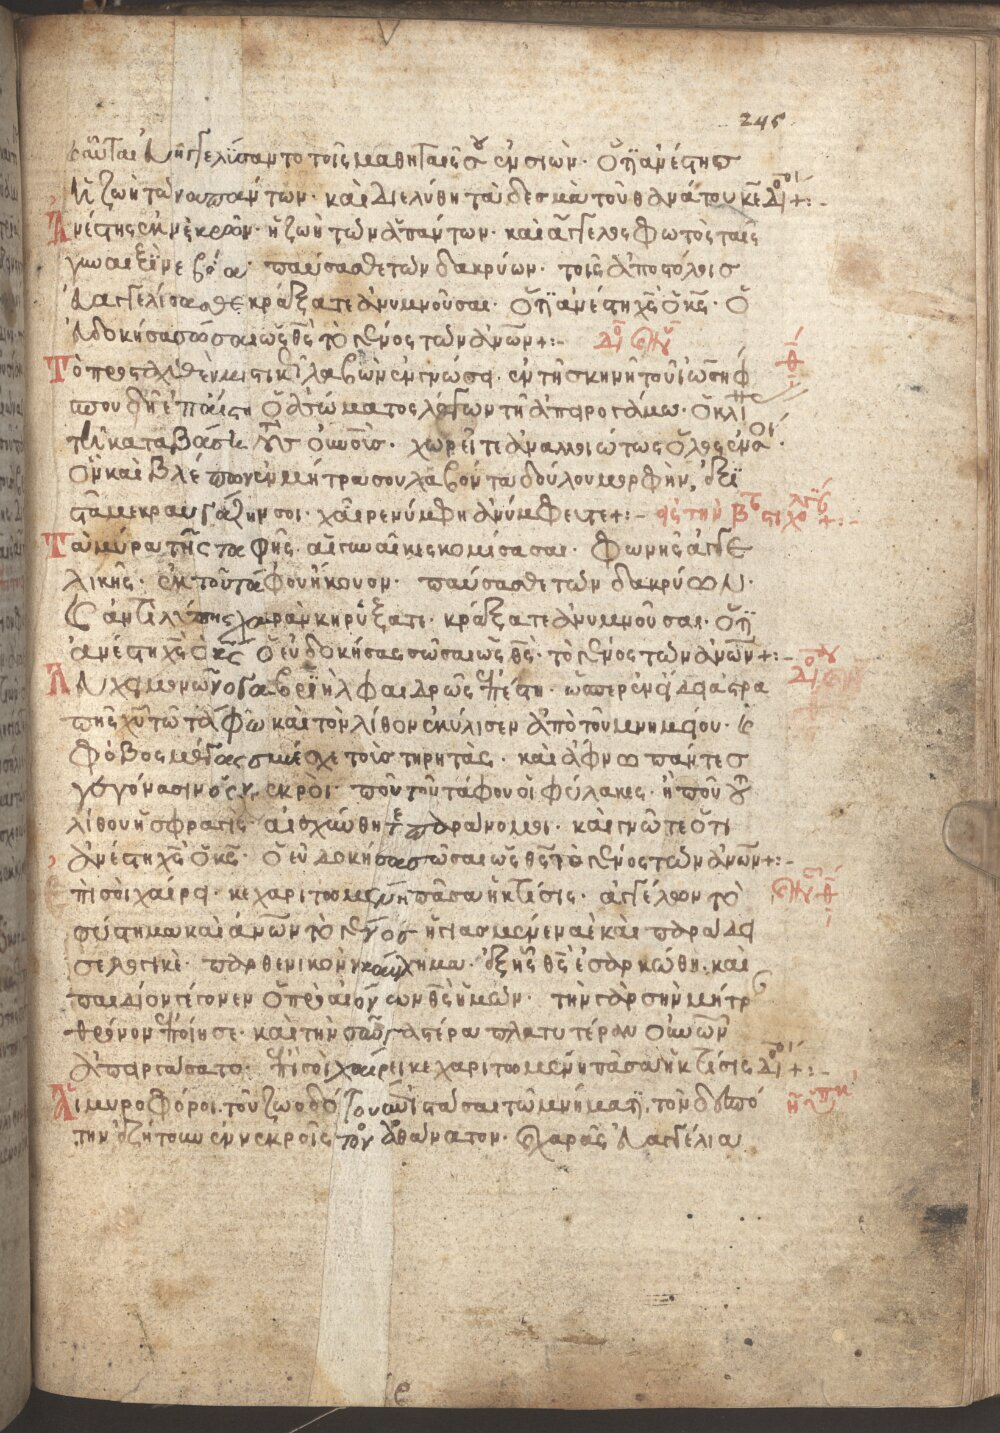 245
αὗται εὐηγγελίσαντο τοῖς μαθηταῖς σου ἐν σιών· ὅτι ἀνέστης
ἡ ζωὴ τῶν ἁπάντων· καὶ διελύθη τὰ δεσμὰ τοῦ θανάτου κε δο +:-
Ανέστης ἐκ νεκρῶν· ἡ ζωὴ τῶν ἁπάντων· καὶ ἄγγελος φωτὸς ταῖς
γυναιξὶν ἐβόα· παύσασθε τῶν δακρύων· τοῖς ἀποστόλοις
εὐαγγελίσασθε κράξατε ἀνυμνοῦσαι· ὅτι ἀνέστη χς ὁ κς· ὁ
εὐδοκήσας σῶσαι ὡς θς τὸ γένος τῶν ἀνων +:-
Τὸ προσταχθὲν μυστικῶς λαβὼν ἐν γνώσει· ἐν τῇ σκηνῇ τοῦ ἰωσὴφ
σπουδῇ ἐπέστη ὁ ἀσώματος λέγων τῇ ἀπειρογάμω· ὁ κλί
νας καταβάσει τοὺς οὐνοὺς· χωρεῖται ἀναλλοιώτως ὅλος ἐν σοί·
ὃν καὶ βλέπων ἐν μήτρα σου λαβόντα δούλου μορφὴν, ἐξί
σταμαι κραυγάζειν σοι· χαῖρε νύμφη ἀνύμφευτε +:-
Τὰ μύρα τῆς ταφῆς· αἱ γυναῖκες κομίσασαι· φωνῆς ἀγγε
λικῆς· ἐκ τοῦ τάφου ἤκουον· παύσασθε τῶν δακρύων·
καὶ ἀντὶ λύπης χαρὰν κηρύξατε· κράξατε ἀνυμνοῦσαι· ὅτι
ἀνέστη χς ὁ κς ὁ εὐδοκήσας σῶσαι ὡς θς· τὸ γένος τῶν ἀνων +:-
γαβριὴλ φαιδρῶς ἐπέστη· ὥσπερ ἐν εἴδει ἀστρα
πῆς χυ τῶ τάφω καὶ τὸν λίθον ἐκύλισεν ἀπὸ τοῦ μνημείου· καὶ
φόβος μέγας συνέσχε τοὺς τηρητὰς· καὶ ἄφνω πάντες
γεγόνασιν ὡς νεκροὶ· ποῦ τοῦ τάφου οἱ φύλακες· ἢ ποῦ τοῦ
λίθου ἡ σφραγίς· αἰσχύνθητε παράνομοι· καὶ γνῶτε ὅτι
ἀνέστη χς ὁ κς· ὁ εὐδοκήσας σῶσαι ὡς θς τὸ γένος τῶν ἀνων +:-
Επὶ σοὶ χαίρει· κεχαριτωμένη πᾶσα ἡ κτίσις· ἀγγέλων τὸ
σύστημα καὶ ἀνων τὸ γένος ἡγιασμένε ναὲ καὶ παράδει
σε λογικὲ· παρθενικὸν καύχημα· ἐξ ἧς θς ἐσαρκώθη· καὶ
παιδίον γέγονεν ὁ πρὸ αἰώνων θς ἡμῶν· τὴν γὰρ σὴν μήτρα
θρόνον ἐποίησε· καὶ τὴν σὴν γαστέρα πλατυτέραν οὐνῶν
ἀπειργάσατο· ἐπὶ σοὶ χαίρει κεχαριτωμένη πᾶσα ἡ κτίσις δο +:-
Αἱ μυροφόροι τοῦ ζωοδότου ἐπιστᾶσαι τῶ μνήματι, τὸν δεσπό
την ἐζήτουν ἐν νεκροῖς τὸν ἀθάνατον· χαρᾶς εὐαγγέλια